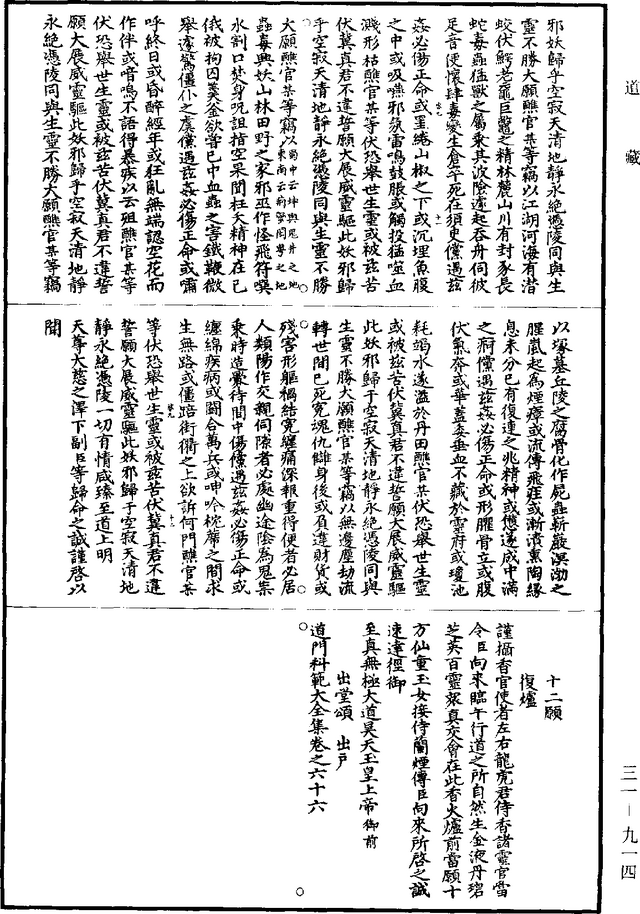 道藏
三一—九一四
邪妖歸乎空寂天清地静永絶憑陵同與生
靈不勝大願醮官某等竊以江湖河海有潛
蛟伏鰐老黿巨鼈之精林麓山川有封豕長
蛇毒蟲猛獸之屬乘其波險遽起吞舟伺彼
足音便懷肆毒變生倉卒死在須臾儻遇兹
姦必傷正命或墨綣山椒之下或沉埋魚腹
之中或吸嚥邪氛雷鳴鼓脹或觸投猛噬血
濺形枯醮官某等伏恐舉世生靈或被兹苦
伏冀真君不違誓願大展威靈驅此妖邪歸
乎空寂天清地静永絶憑陵同與生靈不勝
大願醮官某等竊以
蠱毒興妖山林田野之家邪巫作怪飛符噀
水割口焚身呪詛指空采聞枉夭精神在已
俄被拘囚羹金欲嘗巳中血蟲之害鐵鞭微
舉遽驚僵仆之虞儻遇兹姦必傷正命或嘯
呼終日或昏醉經年或狂亂無端認空花而
作伴或喑鳴不語得暴疾以云殂醮官某等
伏恐舉世生靈或被兹苦伏冀真君不違誓
願大展威靈驅此妖邪歸乎空寂天清地静
永絶憑陵同與生靈不勝大願醮官某等竊
以塚墓丘陵之腐骨化作屍蟲嶄巖溟渤之
腥嵐起為煙瘴或流傳飛疰或漸漬熏陶緣
息未分已有復連之兆精神或憊遂感中滿
之痾儻遇兹姦必傷正命或形臞骨立或腹
伏氣奔或華蓋委垂血不藏於靈府或瓊池
耗竭水遂溢於丹田醮官某伏恐舉世生靈
或被兹苦伏冀真君不違誓願大展威靈驅
此妖邪歸于空寂天清地静永絶憑陵同與
生靈不勝大願醮官某等竊以無邊塵劫流
轉世間已死冤魂仇讎身後或負違財貨或
殘害形軀穪結冤纏痛深報重得便者必居
人類陽作交親伺隙者必處幽途陰為鬼祟
乘時造釁待間中傷儻遇兹姦必傷正命或
纏綿疾病或鬬合萬兵或呻吟枕蓆之間求
生無路或僵踣街衢之上欲訴何門醮官某
等伏恐舉世生靈或被兹苦伏冀真君不違
誓願大展威靈驅此妖邪歸于空寂天清地
静永絶憑陵一切有情咸臻至道上明
天尊大慈之澤下副臣等歸命之誠謹啓以
聞
十二願
復爐
謹攝香官使者左右龍虎君侍香諸靈官當
令臣向來臨午行道之所自然生金液丹碧
芝英百靈衆真交會在此香火爐前當願十
方仙童玉女接侍蘭煙傳臣向來所啓之誠
速達徑御
至真無極大道昊天玉皇上帝御前
出堂頌　出户
道門科範大全集卷之六十六